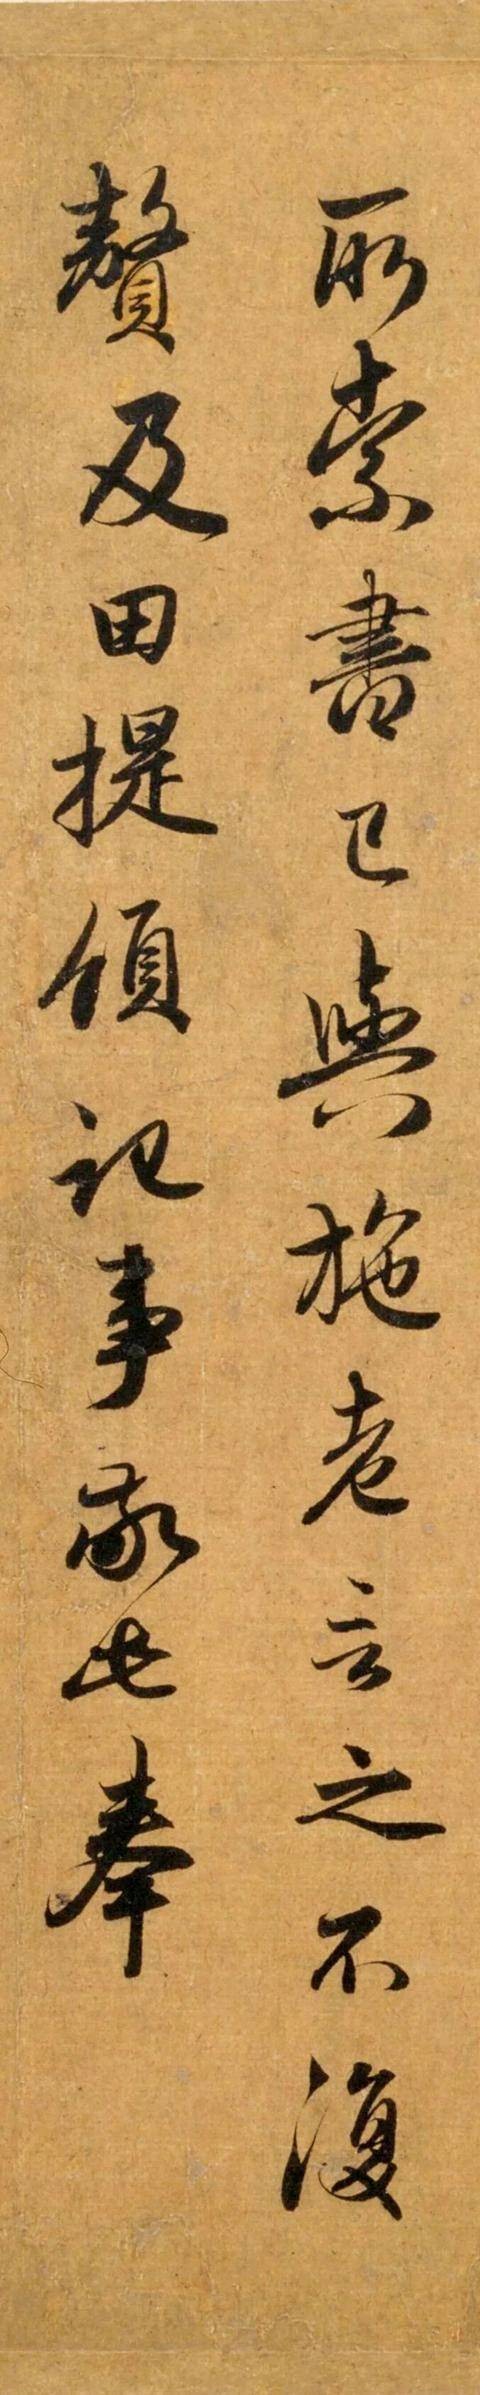 所索書已與施老言之不復
贅及田提領記事敬此奉